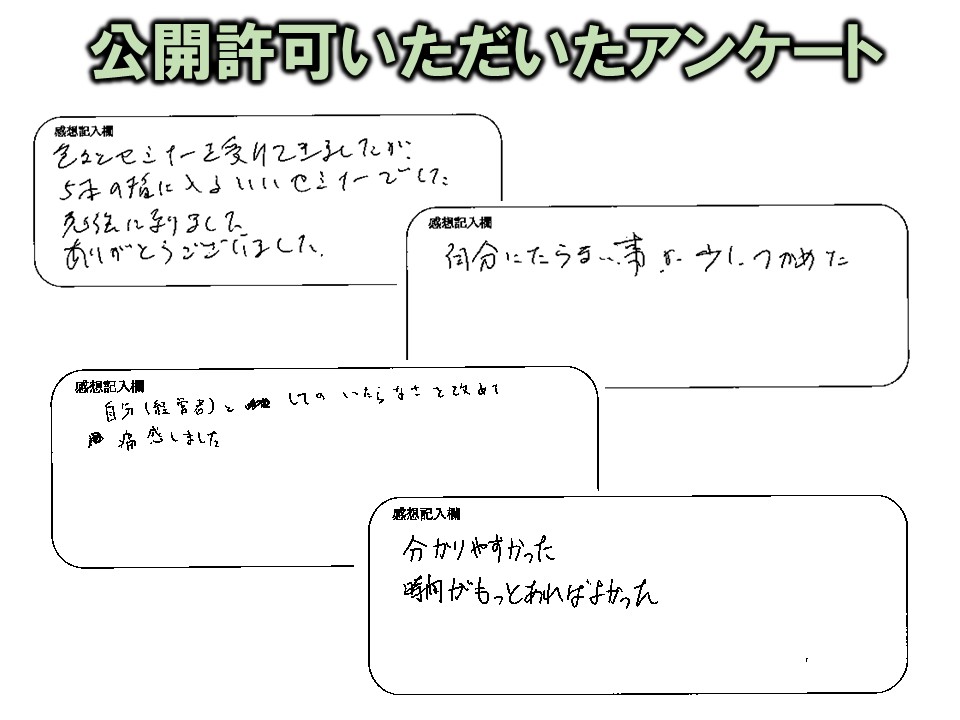 公開許可いただいたアンケート
感想記入欄
色々とセミナーを受けてきましたが、
5本の指に入るいいセミナーでした
勉強に成りました
ありがとうございました。
感想記入欄
自分にたらない事が少しつかめた
感想記入欄
自分(経営者)と してのいたらなさを改めて
痛感しました
感想記入欄
分かりやすかった
時間がもっとあればよかった